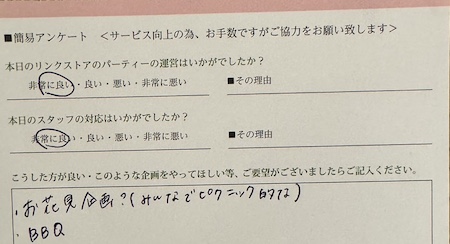 ■簡易アンケート ＜サービス向上の為、お手数ですがご協力をお願い致します＞
本日のリンクストアのパーティーの運営はいかがでしたか？
非常に良い・良い・悪い・非常に悪い ■その理由
本日のスタッフの対応はいかがでしたか？
非常に良い・良い・悪い・非常に悪い ■その理由
こうした方が良い・このような企画をやってほしい等、ご要望がございましたらご記入ください。
・お花見企画？(みんなでピクニック的な)
・BBQ